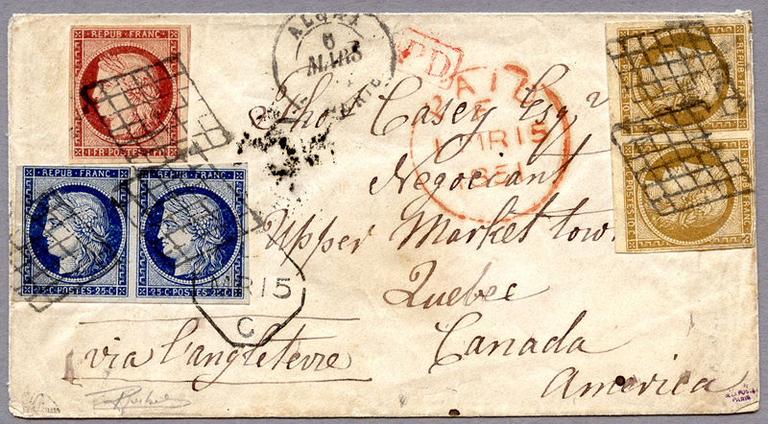 REPUB FRANC
1 FR POSTES 1 FR
REPUB FRANC
25 C POSTES 25 C
REPUB FRANC
25 C POSTES 25 C
REPUB FRANC
REPUB FRANC
6
MARS
PD
MR 15
1851
Thos Casey Esqr
Negociant
Upper Market town
Quebec
Canada
America
MR 15
C
via l'angleterre